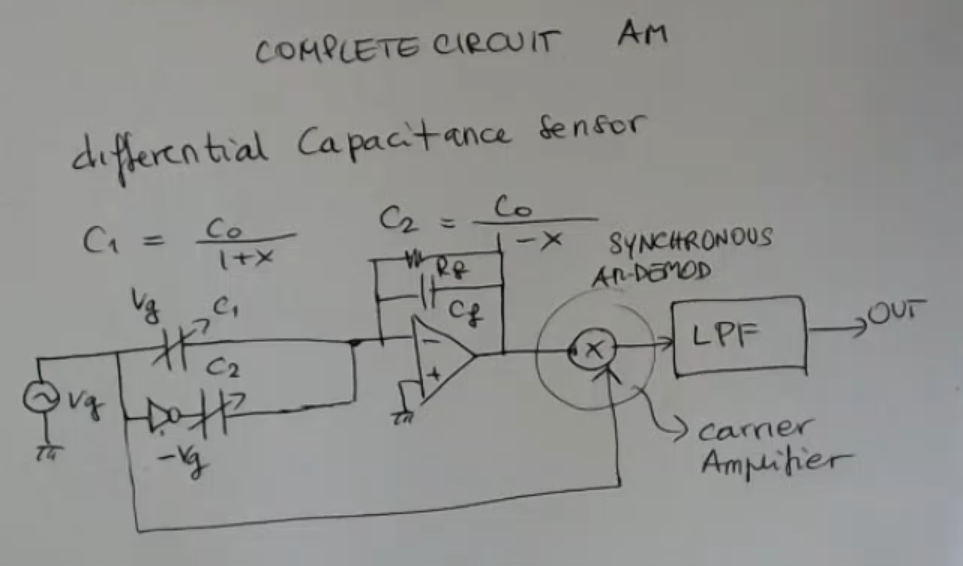 COMPLETE CIRCUIT AM
differential Capacitance Sensor
C1 = C0 / 1+x
C2 = C0 / 1-x
SYNCHRONOUS
AM-DEMOD
Rf
Cf
Vg
C1
C2
Vg
-Vg
-
+
X
LPF
OUT
carrier
Amplifier